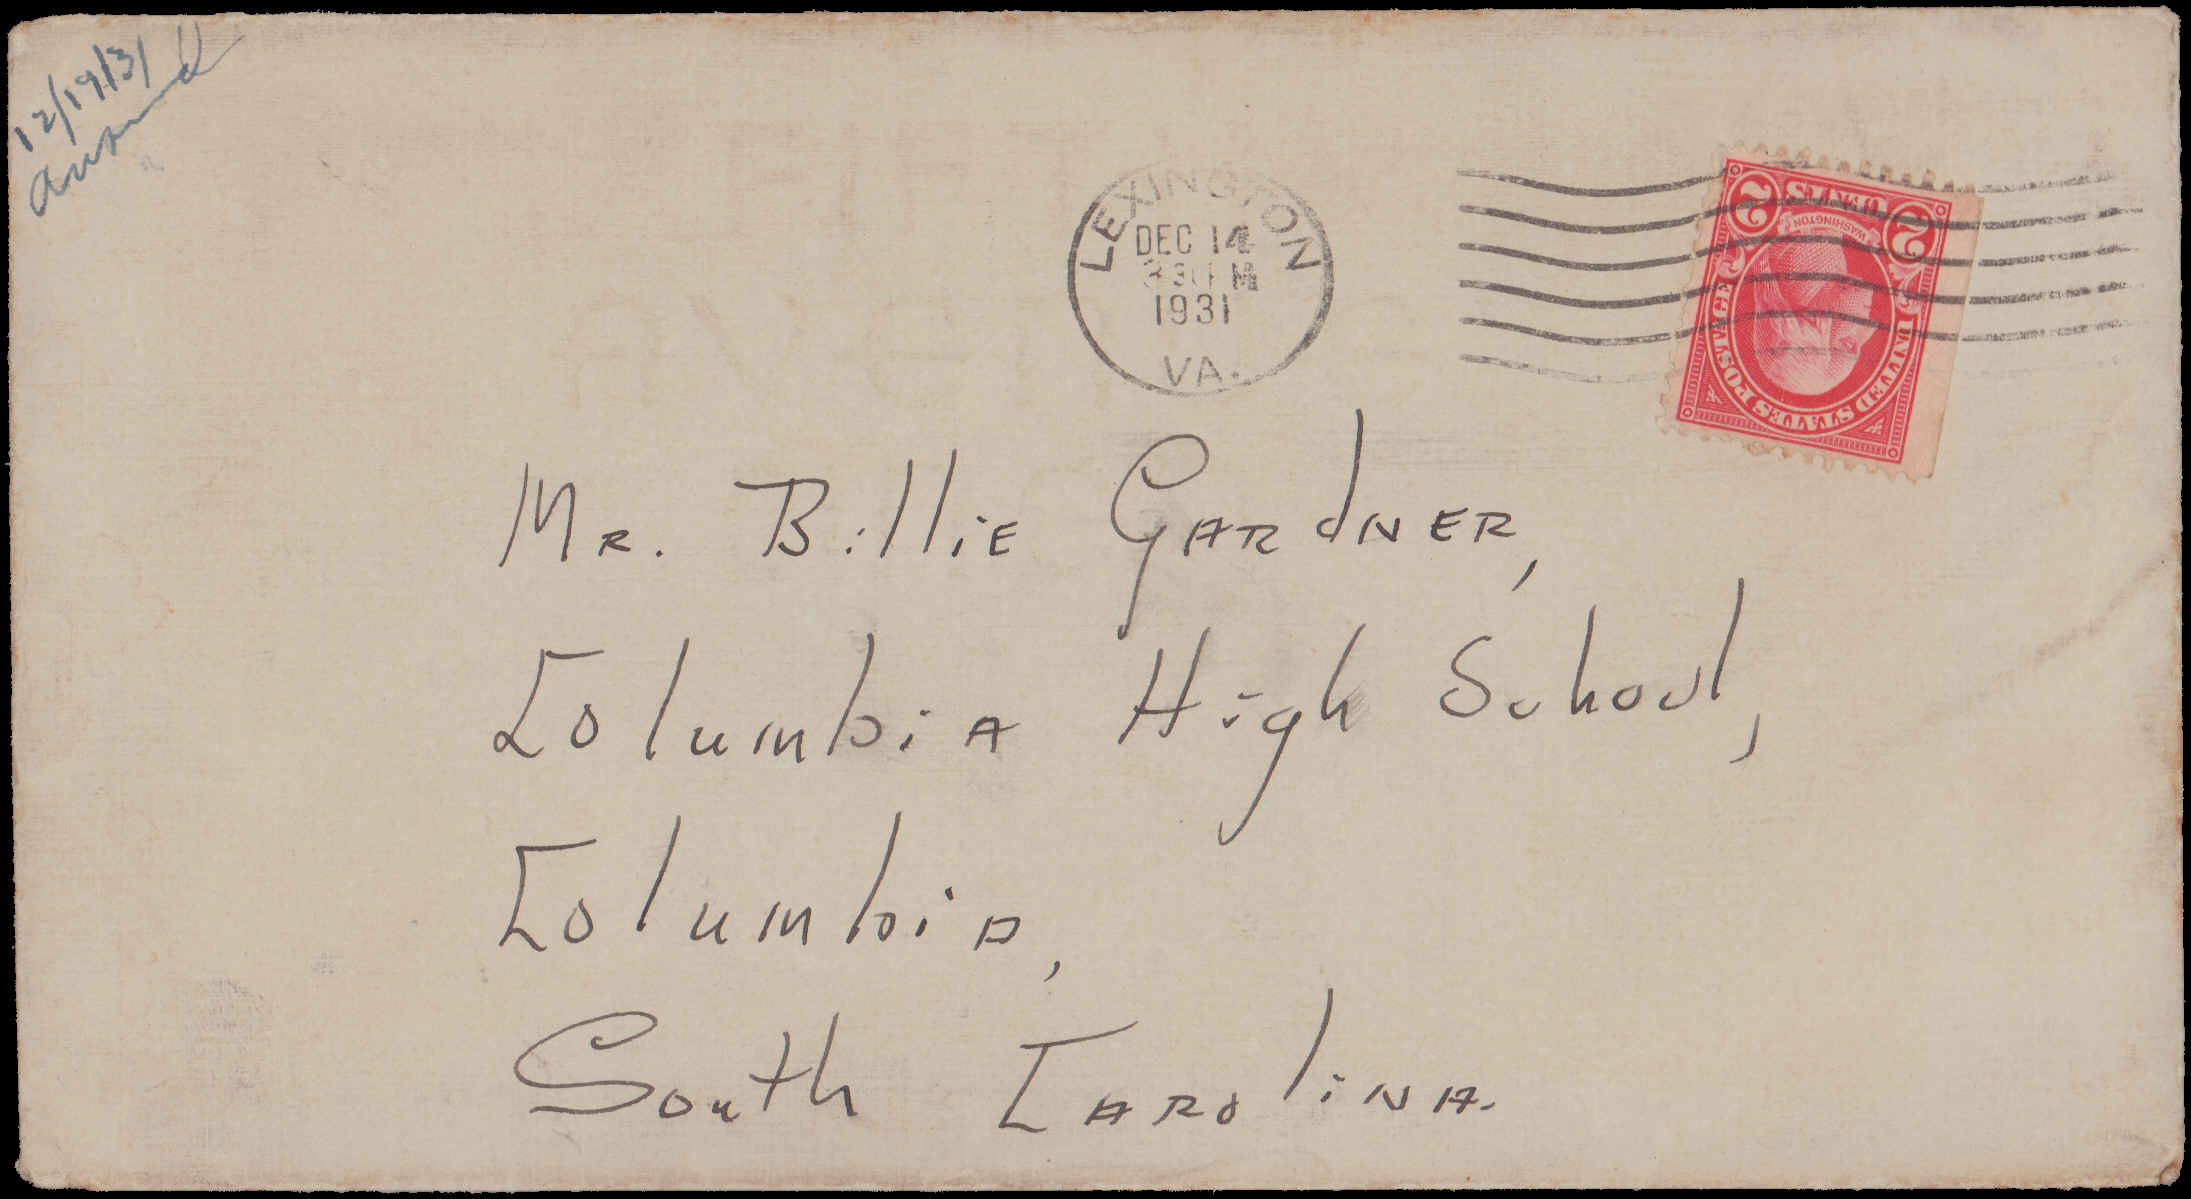 12/19/31
LEXINGTON
DEC 14
3 30 PM
1931
VA.
2 CENTS 2
WASHINGTON
UNITED STATES POSTAGE
Mr. Billie Gardner,
Columbia High School,
Columbia,
South Carolina.